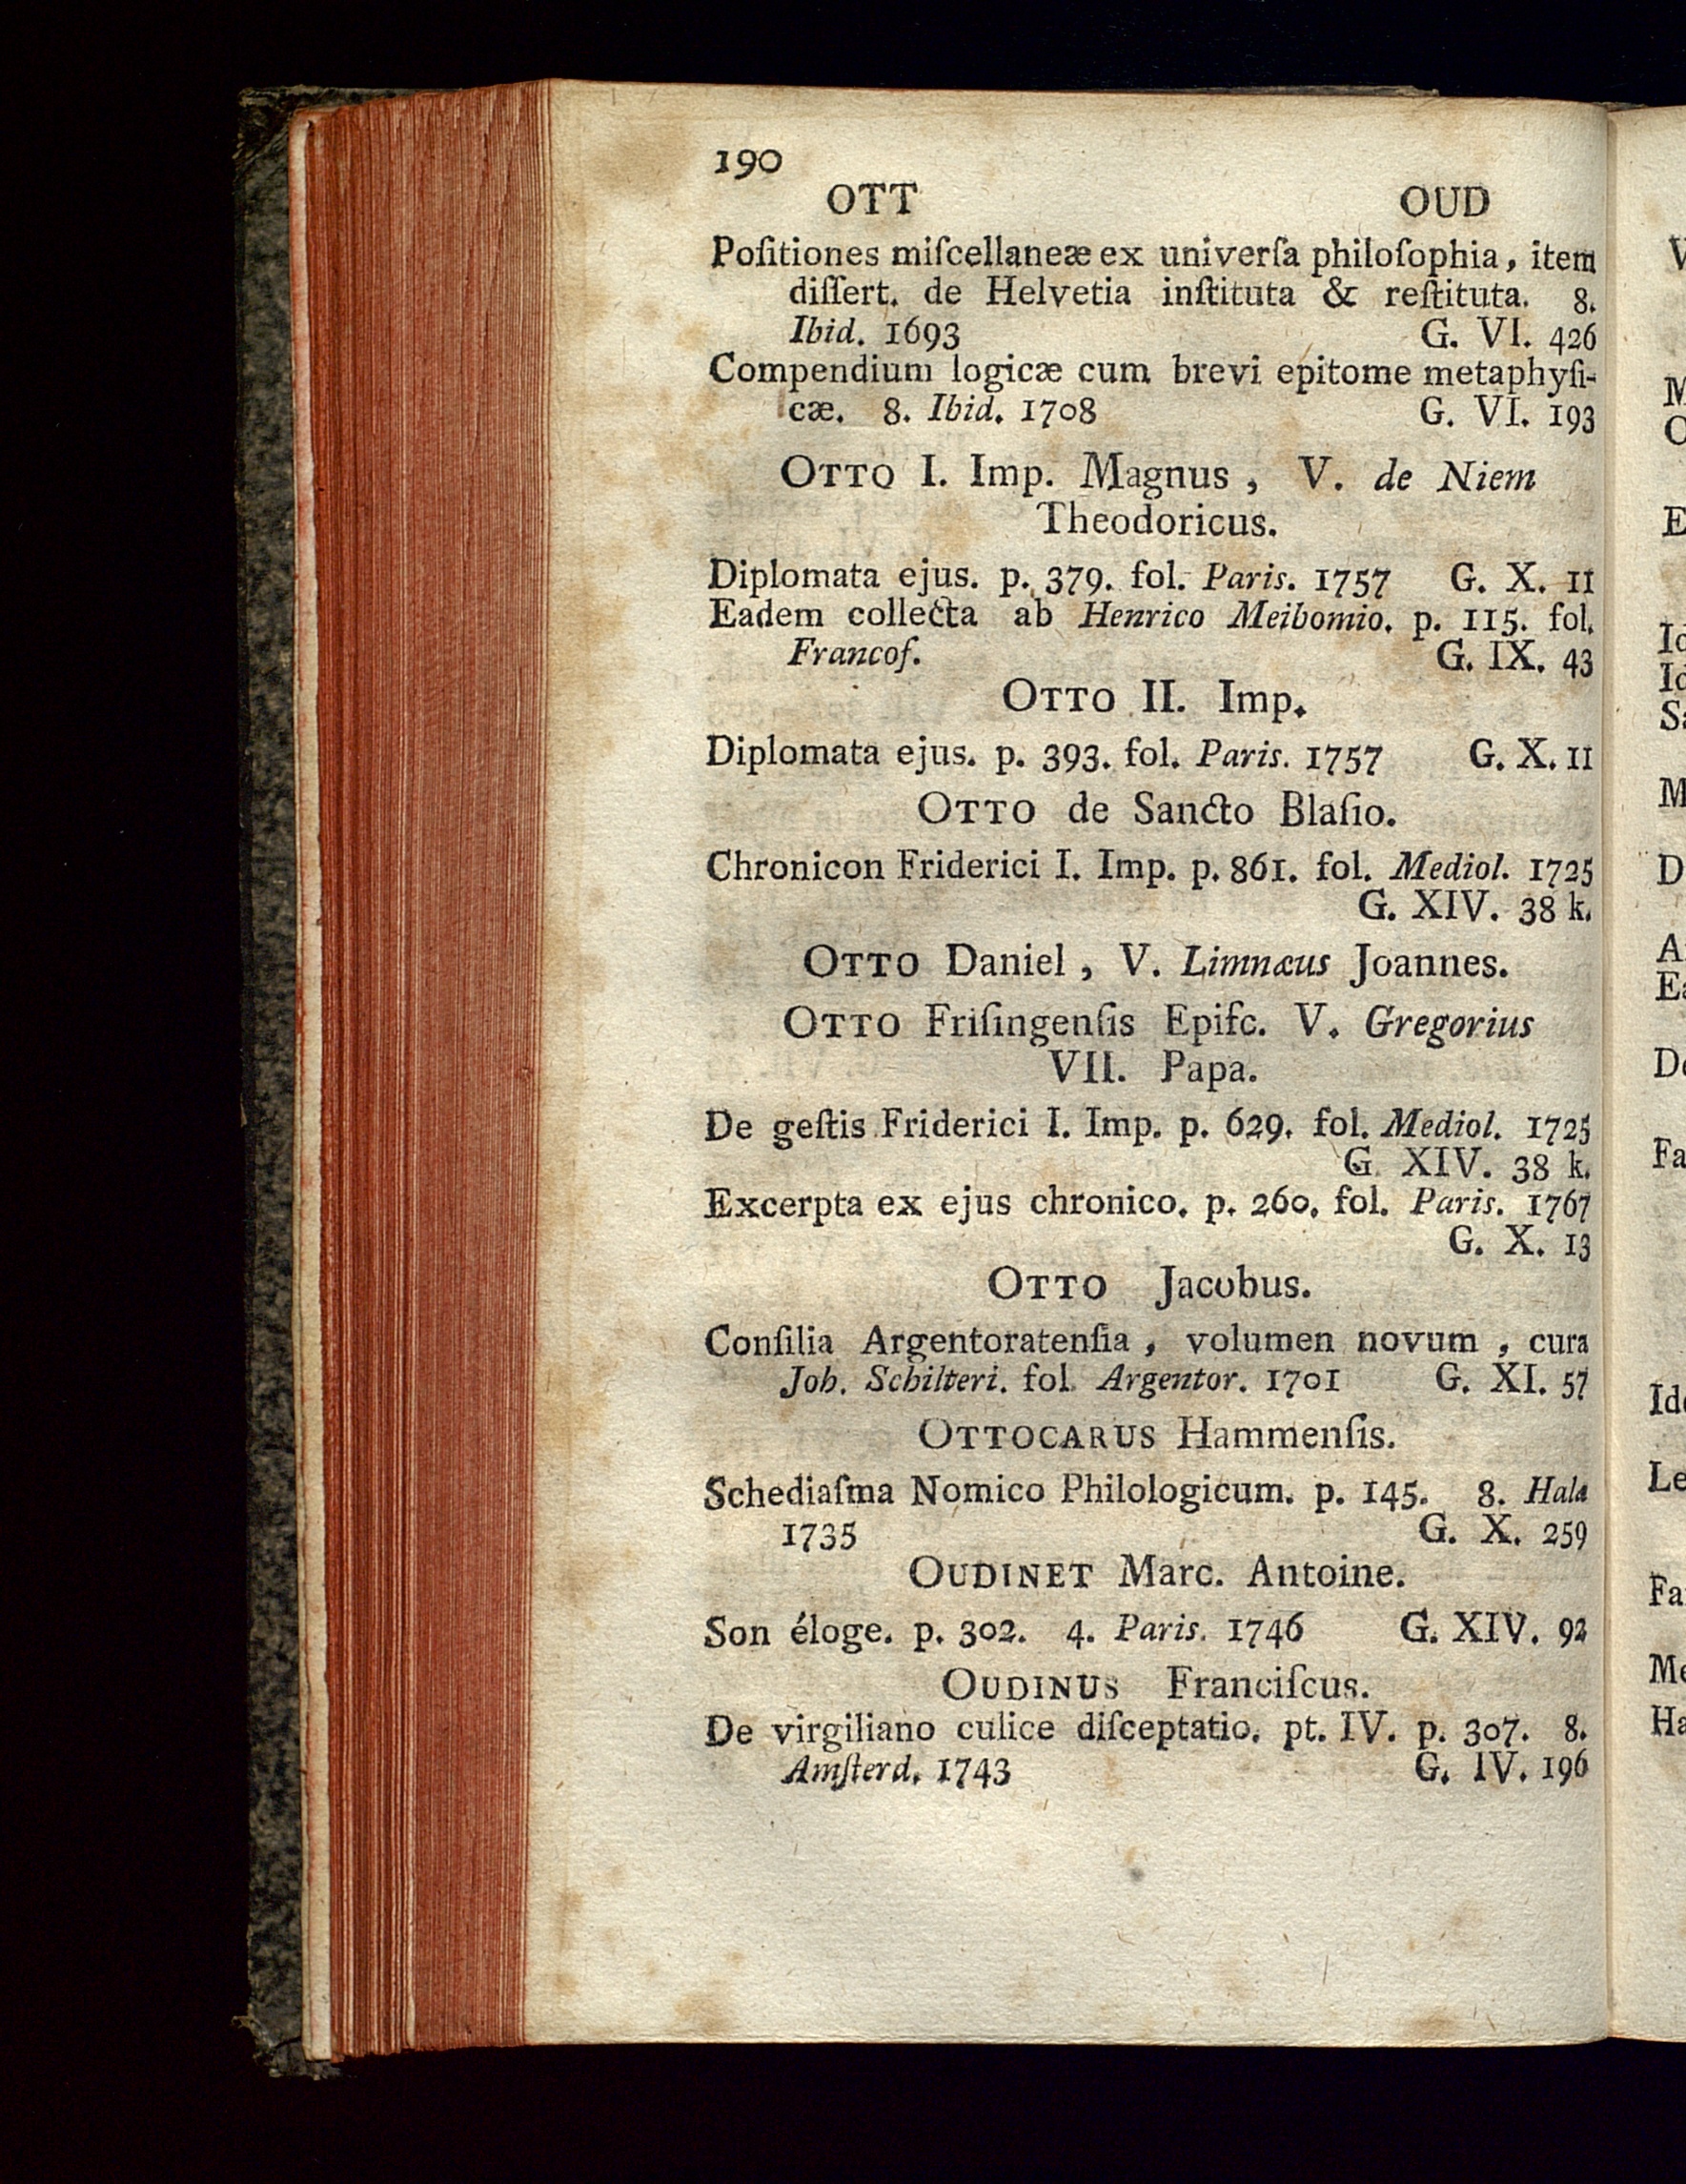 190
OTT OUD
Poſitiones miſcellaneæ ex univerſa philoſophia, item
diſſert. de Helvetia inſtituta & reſtituta. 8.
Ibid. 1693 G. VI. 426
Compendium logicæ cum brevi epitome metaphyſi-
cæ. 8. Ibid. 1708 G. VI. 193
OTTO I. Imp. Magnus, V. de Niem
Theodoricus.
Diplomata ejus. p. 379. fol. Paris. 1757 G. X. 11
Eadem collecta ab Henrico Meibomio. p. 115. fol.
Francof. G. IX. 43
OTTO II. Imp.
Diplomata ejus. p. 393. fol. Paris. 1757 G. X. 11
OTTO de Sancto Blaſio.
Chronicon Friderici I. Imp. p. 861. fol. Mediol. 1725
G. XIV. 38 k.
OTTO Daniel, V. Limnæus Joannes.
OTTO Friſingenſis Epiſc. V. Gregorius
VII. Papa.
De geſtis Friderici I. Imp. p. 629. fol. Mediol. 1725
G. XIV. 38 k.
Excerpta ex ejus chronico. p. 260. fol. Paris. 1767
G. X. 13
OTTO Jacobus.
Conſilia Argentoratenſia, volumen novum, cura
Joh. Schilteri. fol. Argentor. 1701 G. XI. 57
OTTOCARUS Hammenſis.
Schediaſma Nomico Philologicum. p. 145. 8. Halæ
1735 G. X. 259
OUDINET Marc. Antoine.
Son éloge. p. 302. 4. Paris. 1746 G. XIV. 92
OUDINUS Franciſcus.
De virgiliano culice diſceptatio. pt. IV. p. 307. 8.
Amſterd. 1743 G. IV. 196